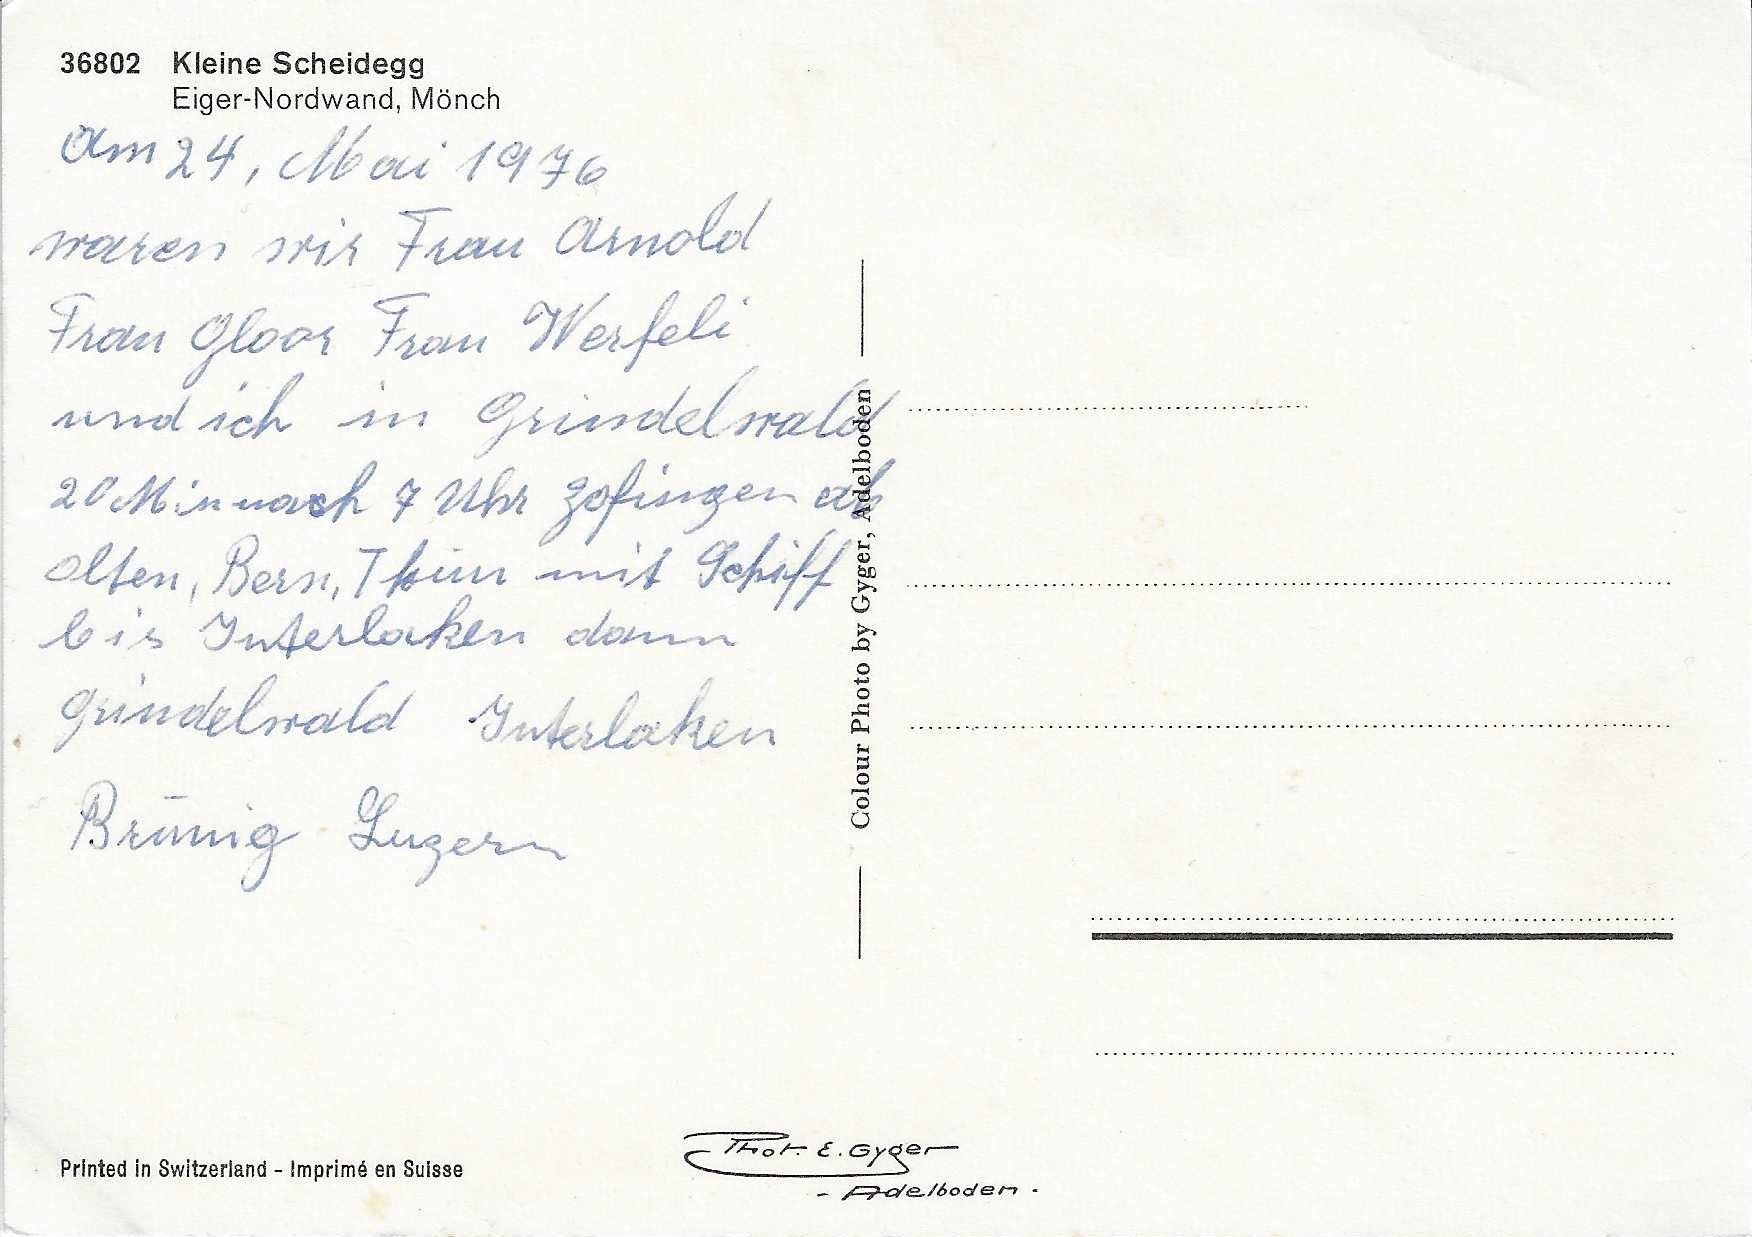 36802 Kleine Scheidegg
Eiger-Nordwand, Mönch
Am 24, Mai 1976
waren wir Frau Arnold
Frau Gloor Frau Werfeli
und ich in Grindelwald
20 Min nach 7 Uhr Zofingen ab
Olten, Bern, Thun mit Schiff
bis Interlaken dann
Grindelwald Interlaken
Brünig Luzern
Colour Photo by Gyger, Adelboden
Printed in Switzerland - Imprimé en Suisse
Phot. E. Gyger
- Adelboden -